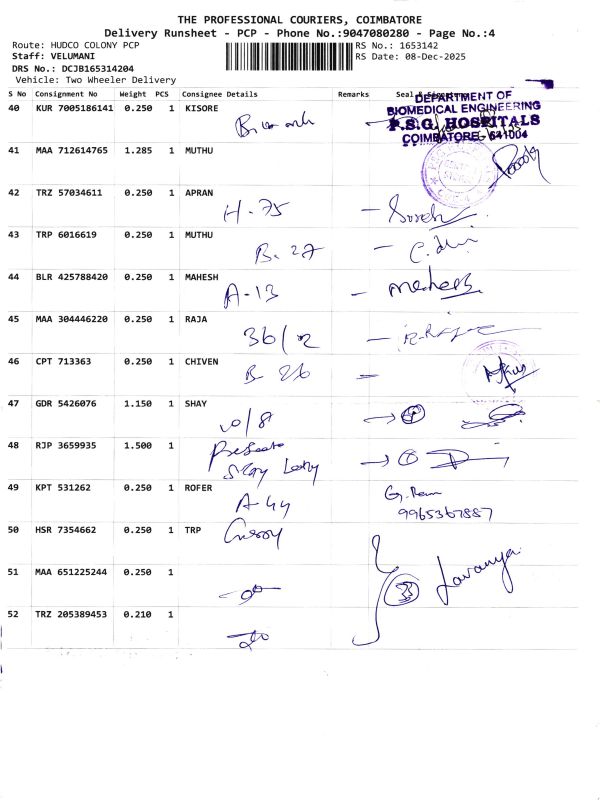 THE PROFESSIONAL COURIERS, COIMBATORE
Delivery Runsheet - PCP - Phone No.:9047080280 - Page No.:4
Route: HUDCO COLONY PCP
RS No.: 1653142
Staff: VELUMANI
RS Date: 08-Dec-2025
DRS No.: DCJB165314204
Vehicle: Two Wheeler Delivery
S No Consignment No Weight PCS Consignee Details Remarks Seal &
DEPARTMENT OF
BIOMEDICAL ENGINEERING
P.S.G. HOSPITALS
COIMBATORE - 641004
40 KUR 7005186141 0.250 1 KISORE
41 MAA 712614765 1.285 1 MUTHU
42 TRZ 57034611 0.250 1 APRAN
H-75
43 TRP 6016619 0.250 1 MUTHU
B-27
44 BLR 425788420 0.250 1 MAHESH
A-13 - Mahesh
45 MAA 304446220 0.250 1 RAJA
46 CPT 713363 0.250 1 CHIVEN
B-26
47 GDR 5426076 1.150 1 SHAY
10/8
48 RJP 3659935 1.500 1
49 KPT 531262 0.250 1 ROFER
A-44
9965367887
50 HSR 7354662 0.250 1 TRP
51 MAA 651225244 0.250 1
Lavanya
52 TRZ 205389453 0.210 1